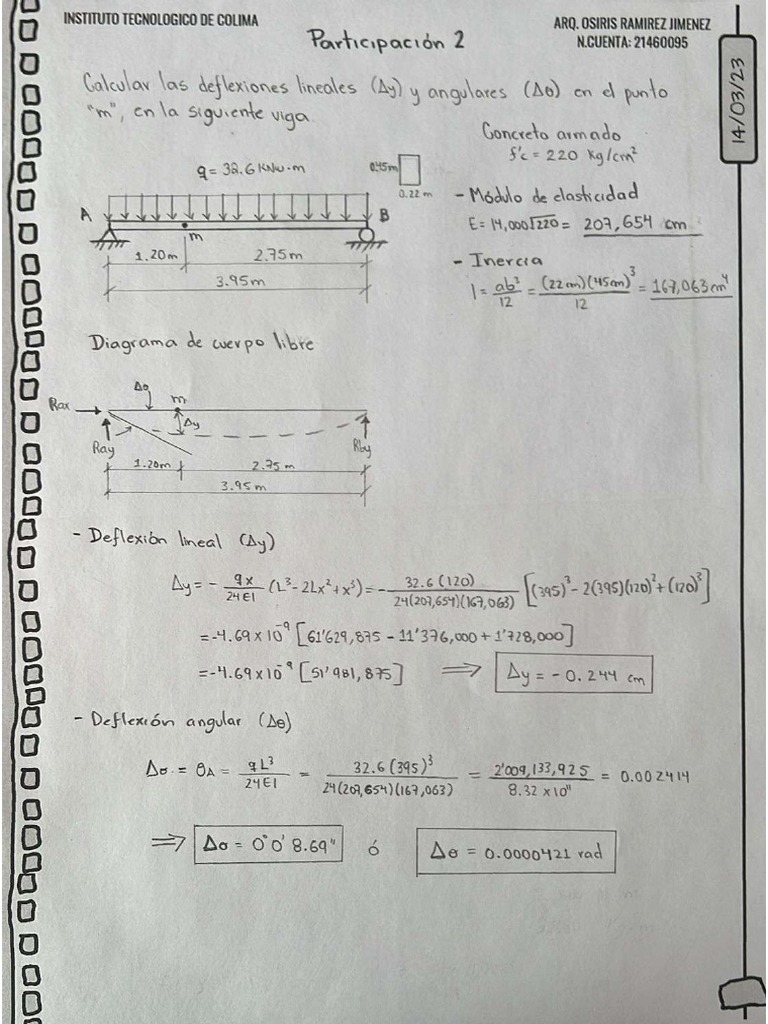 INSTITUTO TECNOLOGICO DE COLIMA
ARQ. OSIRIS RAMIREZ JIMENEZ
N.CUENTA: 21460095
Participación 2
14/03/23
Calcular las deflexiones lineales (Δy) y angulares (Δθ) en el punto
"m", en la siguiente viga.
Concreto armado
f'c = 220 kg/cm²
q = 32.6 KNw·m
0.45m
0.22 m
- Módulo de elasticidad
E = 14,000√220 = 207,654 cm
A
B
m
1.20m
2.75m
3.95m
- Inercia
I = ab³/12 = (22cm)(45cm)³/12 = 167,063cm⁴
Diagrama de cuerpo libre
Δθ
m
Rax
Δy
Ray
Rby
1.20m
2.75m
3.95m
- Deflexión lineal (Δy)
Δy = - qx/24EI (L³-2Lx²+x³) = - 32.6(120)/24(207,654)(167,063) [(395)³-2(395)(120)²+(120)³]
= -4.69x10⁻⁹ [61'629,875 - 11'376,000 + 1'728,000]
= -4.69x10⁻⁹ [51'981,875] ⟹ Δy = -0.244 cm
- Deflexión angular (Δθ)
Δσ = θA = qL³/24EI = 32.6(395)³/24(207,654)(167,063) = 2'009,133,925/8.32x10¹¹ = 0.002414
⟹ Δσ = 0°0'8.69" ó Δθ = 0.0000421 rad